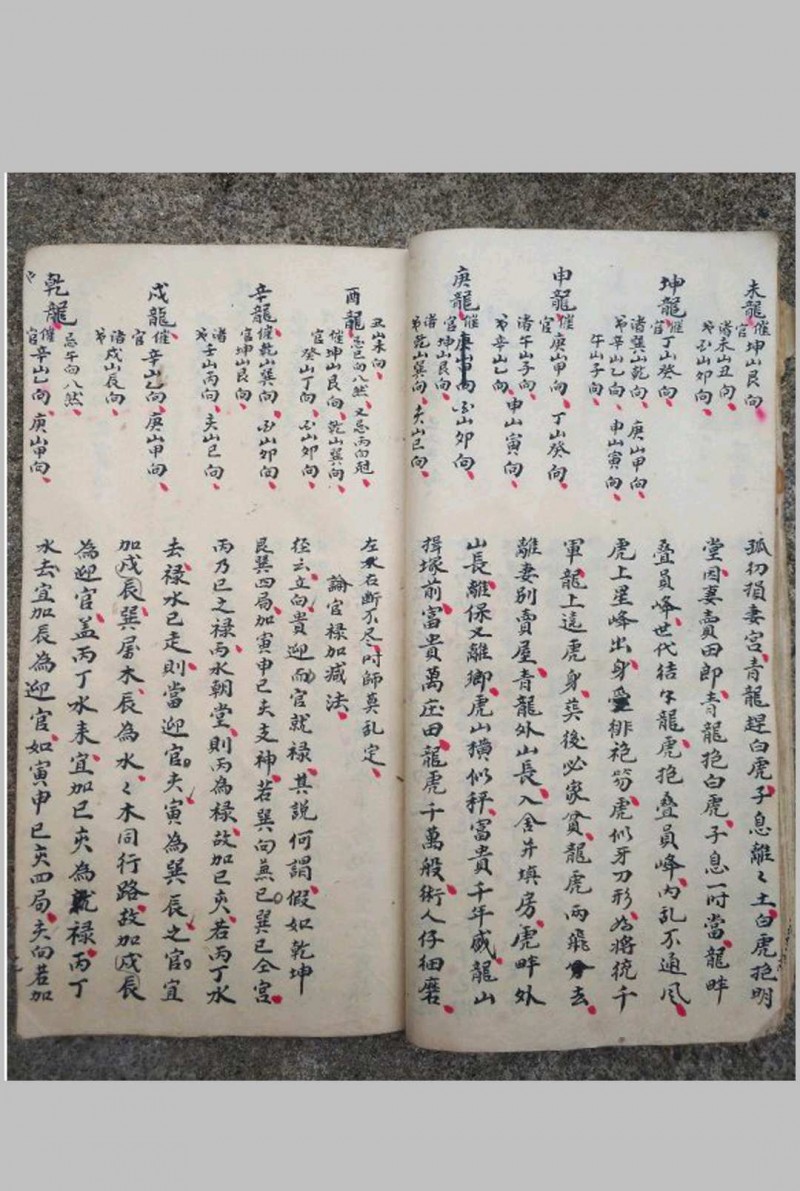 未龍催官坤山艮向
未山丑向
山卯向
坤龍催官丁山癸向
巽山乾向 庚山甲向
辛山乙向 申山寅向
午山子向
申龍催官庚山甲向 丁山癸向
午山子向
辛山乙向 申山寅向
庚龍催官庚山甲向 山卯向
坤山艮向
乾山巽向 亥山巳向
孤切損妻宮青龍趕白虎子息離々土白虎抱明
堂因妻賣田郎青龍抱白虎子息一时當龍畔
叠員峰世代結午龍虎抱叠員峰内乱不通风
虎上星峰出身受緋袍笏虎似牙刀形為將統千
軍龍上這虎身葬後必家貧龍虎两飛分去
離妻别賣屋青龍外山長入舍并填房虎畔外
山長離保又離鄉虎山横似秤富貴千年威龍山
揖塚前富貴萬庄田龍虎千萬般術人仔细磨
丑山未向
酉龍忌巳向八煞又忌丙向冠
催坤山艮向 乾山巽向
官癸山丁向 山卯向
辛龍催官乾山巽向 山卯向
坤山艮向
壬山丙向 亥山巳向
戌龍催官辛山乙向 庚山甲向
戌山辰向
乾龍忌午向八煞
催官辛山乙向 庚山甲向
左水右断不尽吋師莫乱定
論官禄加减法
径云立向貴迎而官就禄其説何謂假如乾坤
艮巽四局加寅申巳亥支神若巽向無巳巽巳仝宫
丙乃巳之禄丙水朝堂則丙為禄故加巳亥若丙丁水
去禄水已走則當迎官亥寅為巽辰之官宜
加戌辰巽屬木辰為水々木同行路故加戌辰
為迎官盖丙丁水来宜加巳亥為就禄丙丁
水去宜加辰為迎官如寅申巳亥四局亥向若加